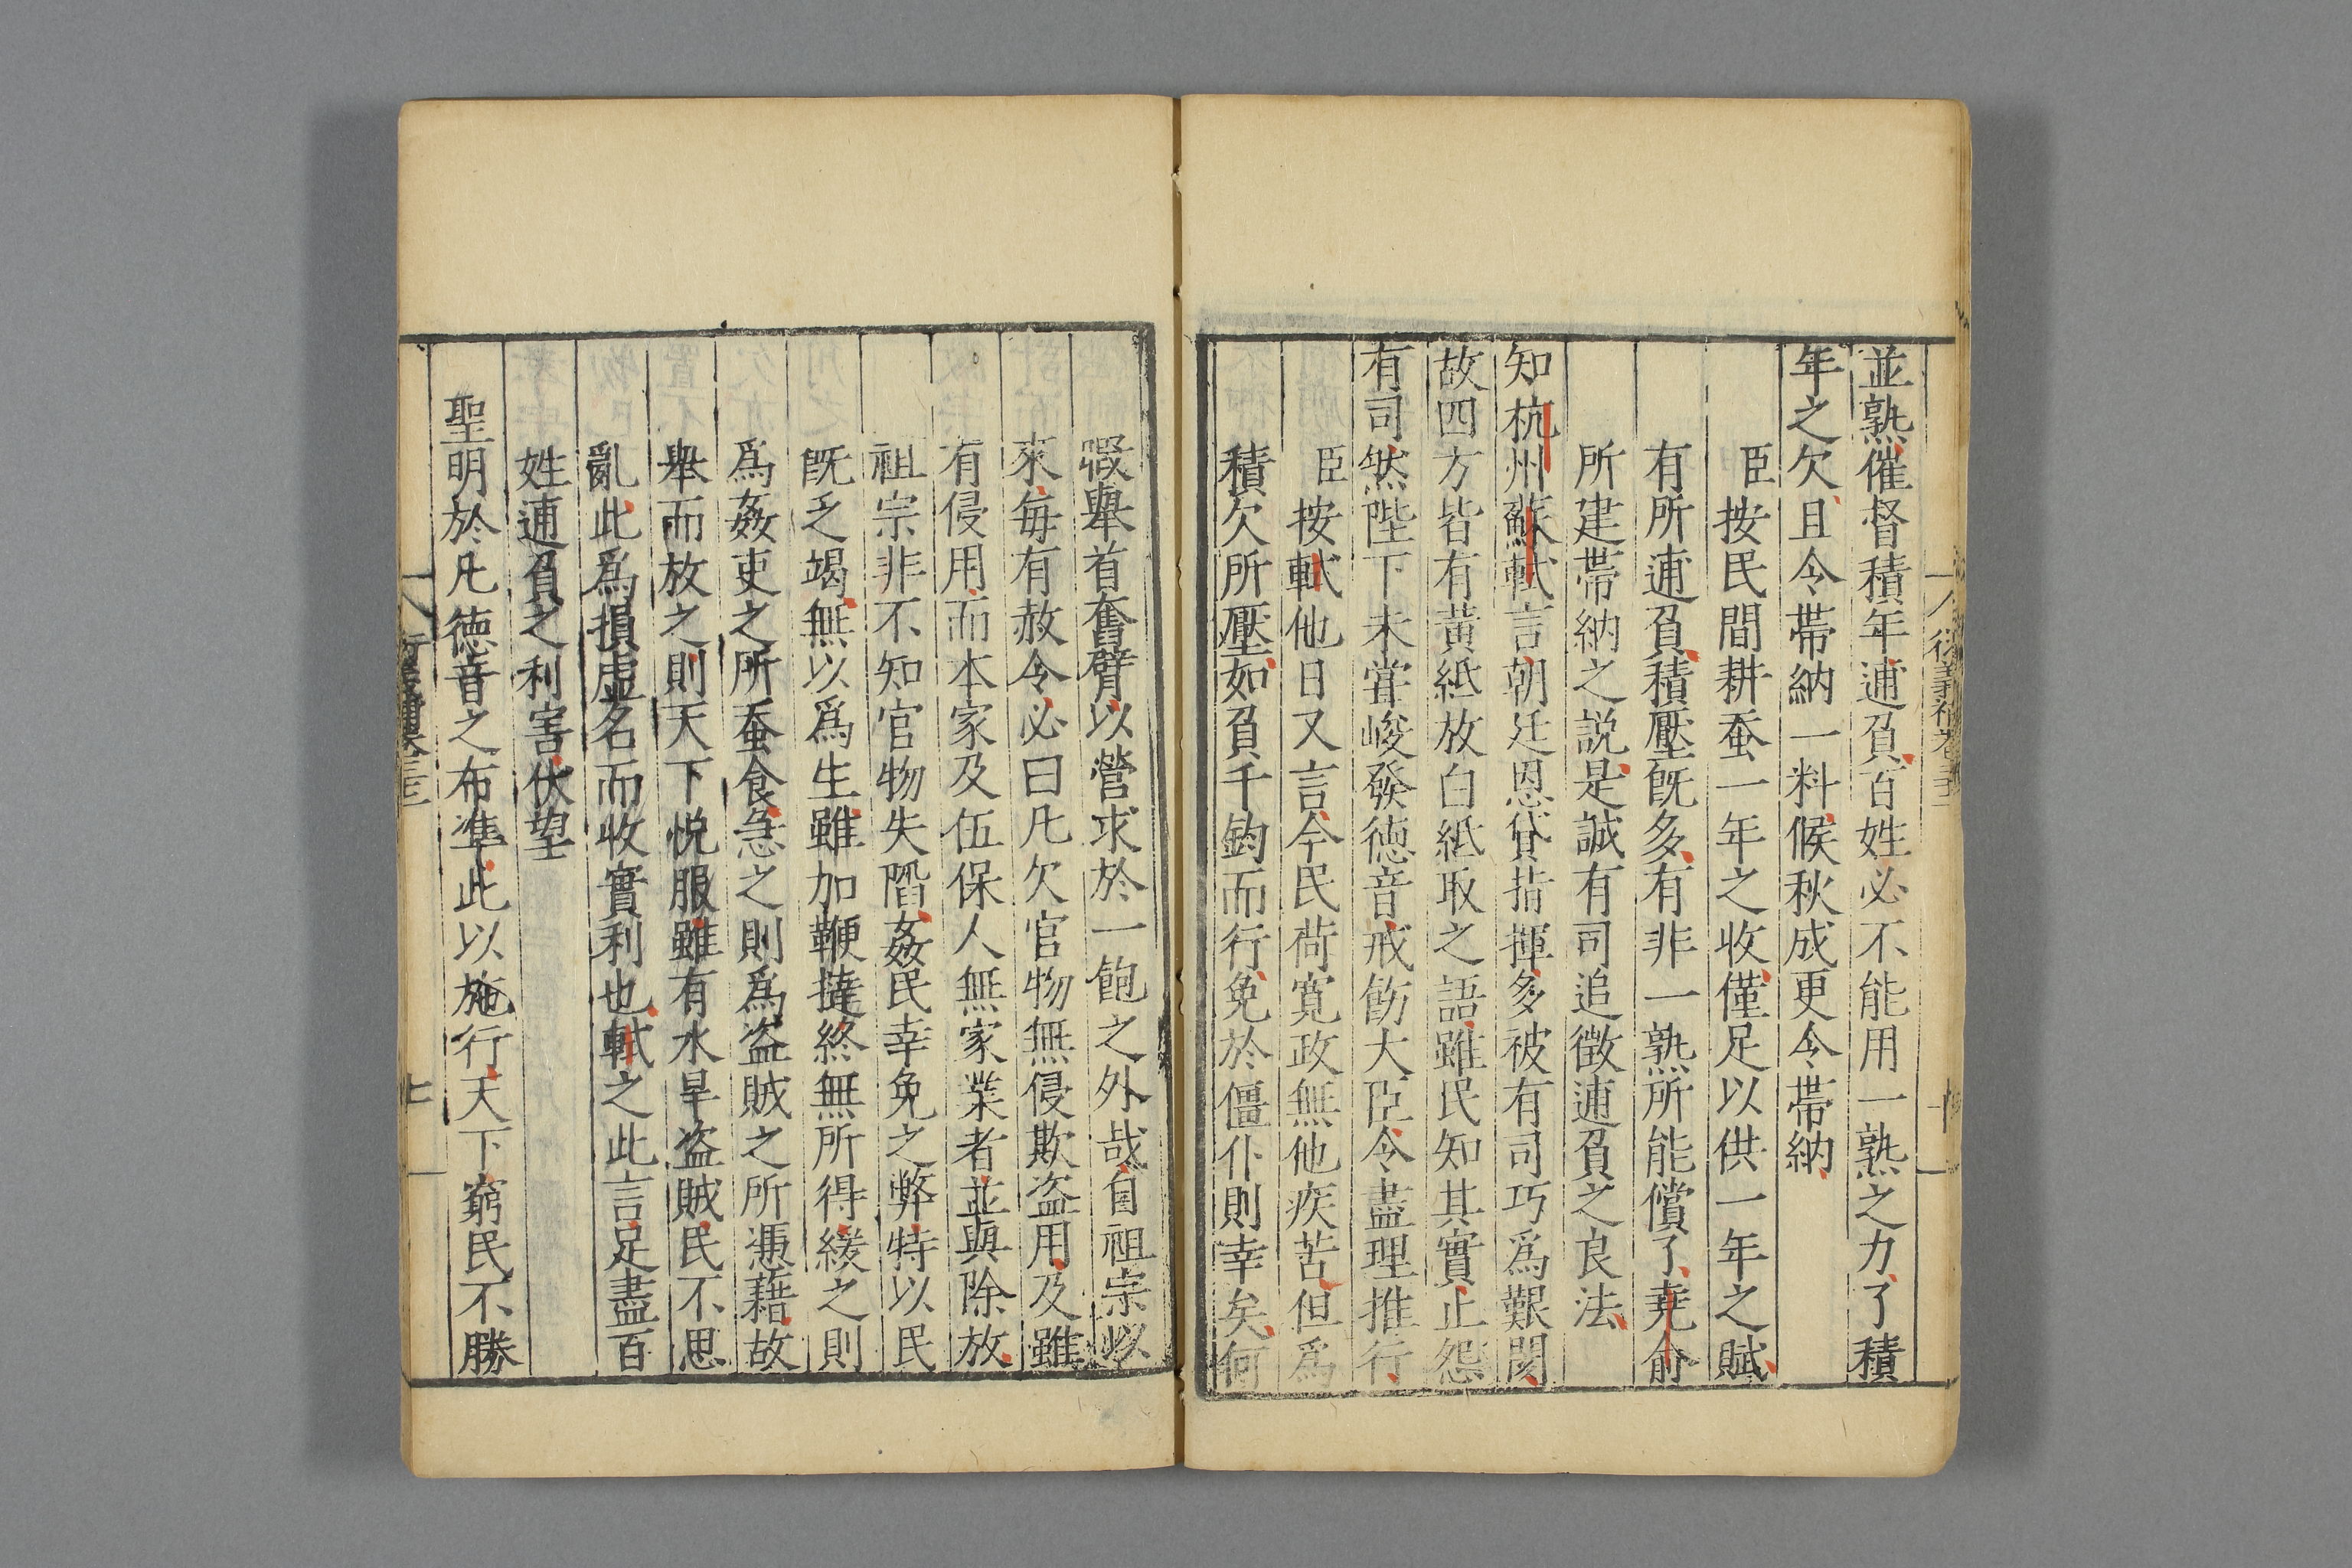 並熟催督積年逋負百姓必不能用一熟之力了積
年之欠且令帶納一料候秋成更令帶納
臣按民間耕蚕一年之收僅足以供一年之賦
有所逋負積壓旣多有非一熟所能償了堯俞
所建帶納之説是誠有司追徵逋負之良法
知杭州蘇軾言朝廷恩貸指揮多被有司巧爲艱閡
故四方皆有黃紙放白紙取之語雖民知其實止怨
有司然陛下未甞峻發德音戒飭大臣令盡理推行
臣按軾他日又言今民荷寛政無他疾苦但爲
積欠所壓如負千鈞而行免於僵仆則幸矣何
暇舉首奮臂以營求於一飽之外哉自祖宗以
來毎有赦令必曰凡欠官物無侵欺盗用及雖
有侵用而本家及伍保人無家業者並與除放
祖宗非不知官物失陷姦民幸免之弊特以民
旣乏竭無以爲生雖加鞭撻終無所得緩之則
爲姦吏之所蚕食急之則爲盗賊之所慿藉故
舉而放之則天下悅服雖有水旱盗賊民不思
亂此爲損虛名而收實利也軾之此言足盡百
姓逋負之利害伏望
聖明於凡德音之布凖此以施行天下窮民不勝